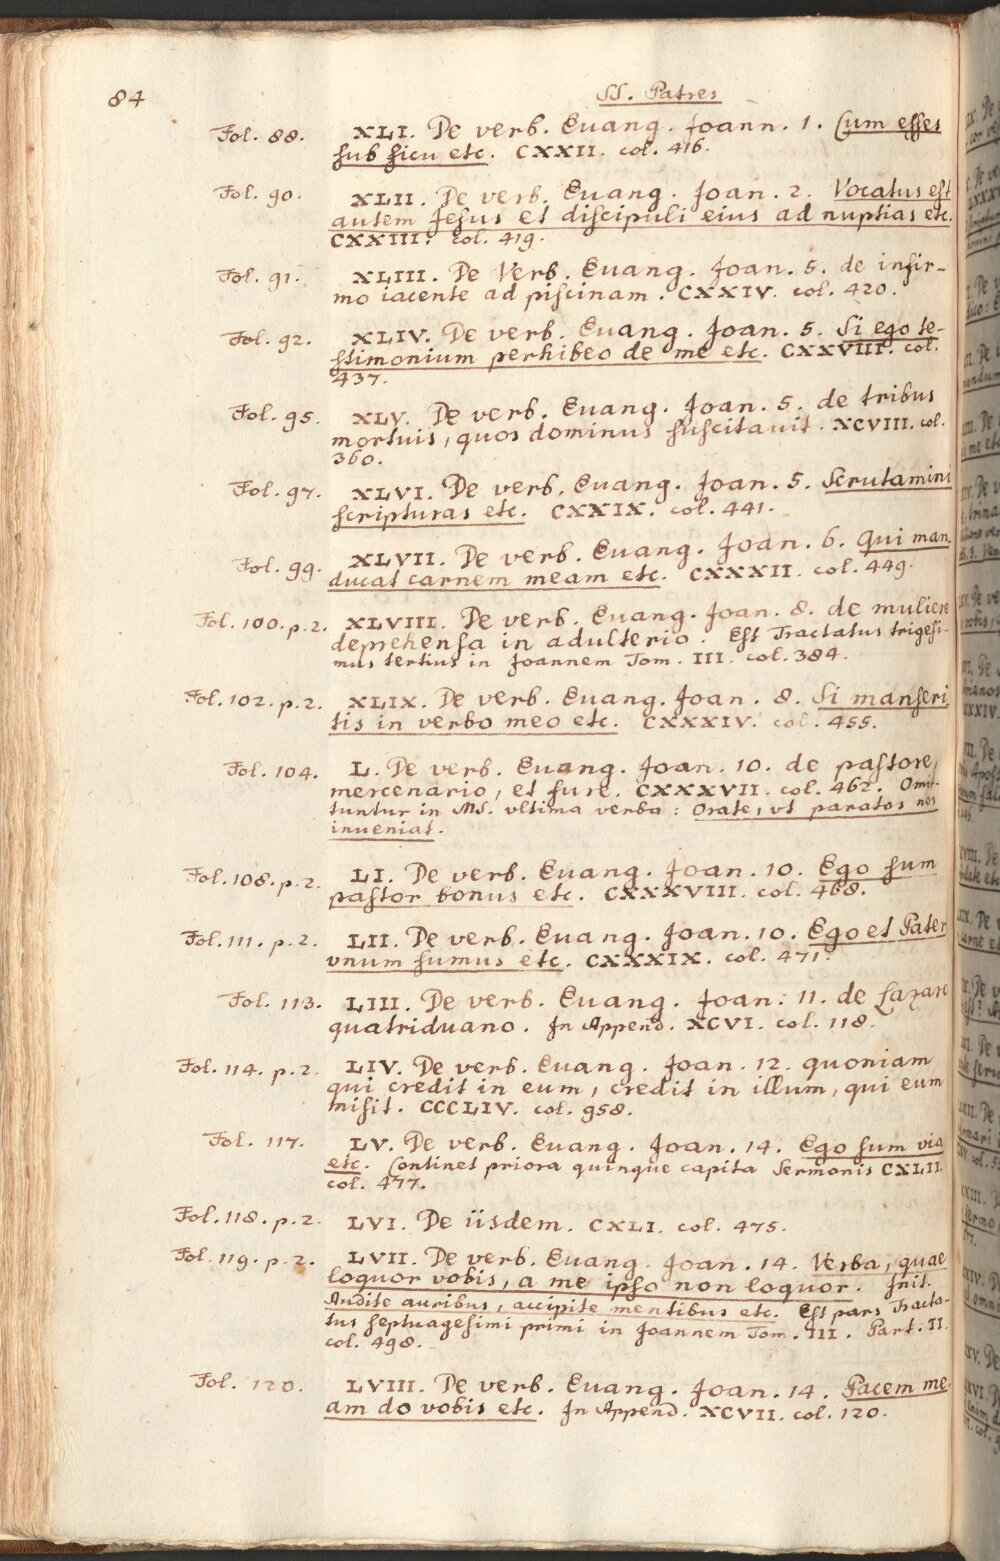 84
SS. Patres
Fol. 88. XLI. De verb. Euang. Joann. 1. Cum esses
sub ficu etc. CXXII. col. 416.
Fol. 90. XLII. De verb. Euang. Joan. 2. Vocatus est
autem Jesus et discipuli eius ad nuptias etc.
CXXIII. col. 419.
Fol. 91. XLIII. De Verb. Euang. Joan. 5. de infir-
mo iacente ad piscinam. CXXIV. col. 420.
Fol. 92. XLIV. De verb. Euang. Joan. 5. Si ego te-
stimonium perhibeo de me etc. CXXVIII. col.
437.
Fol. 95. XLV. De verb. Euang. Joan. 5. de tribus
mortuis, quos dominus suscitauit. XCVIII. col.
360.
Fol. 97. XLVI. De verb. Euang. Joan. 5. Scrutamini
scripturas etc. CXXIX. col. 441.
Fol. 99. XLVII. De verb. Euang. Joan. 6. Qui man-
ducat carnem meam etc. CXXXII. col. 449.
Fol. 100. p. 2. XLVIII. De verb. Euang. Joan. 8. de muliere
deprehensa in adulterio. Est Tractatus trigesi-
mus tertius in Joannem Tom. III. col. 384.
Fol. 102. p. 2. XLIX. De verb. Euang. Joan. 8. Si manseri
tis in verbo meo etc. CXXXIV. col. 455.
Fol. 104. L. De verb. Euang. Joan. 10. de pastore,
mercenario, et fure. CXXXVII. col. 462. Omit-
tuntur in MS. vltima verba: Orate, vt paratos nos
inueniat.
Fol. 108. p. 2. LI. De verb. Euang. Joan. 10. Ego sum
pastor bonus etc. CXXXVIII. col. 468.
Fol. 111. p. 2. LII. De verb. Euang. Joan. 10. Ego et Pater
vnum sumus etc. CXXXIX. col. 471.
Fol. 113. LIII. De verb. Euang. Joan: 11. de Lazaro
quatriduano. In Append. XCVI. col. 118.
Fol. 114. p. 2. LIV. De verb. Euang. Joan. 12. quoniam
qui credit in eum, credit in illum, qui eum
misit. CCCLIV. col. 958.
Fol. 117. LV. De verb. Euang. Joan. 14. Ego sum via
etc. Continet priora quinque capita Sermonis CXLII.
col. 477.
Fol. 118. p. 2. LVI. De iisdem. CXLI. col. 475.
Fol. 119. p. 2. LVII. De verb. Euang. Joan. 14. Verba, quae
loquor vobis, a me ipso non loquor. Init.
Audite auribus, accipite mentibus etc. Est pars Tracta-
tus septuagesimi primi in Joannem Tom. III. Part. II.
col. 498.
Fol. 120. LVIII. De verb. Euang. Joan. 14. Pacem me-
am do vobis etc. In Append. XCVII. col. 120.